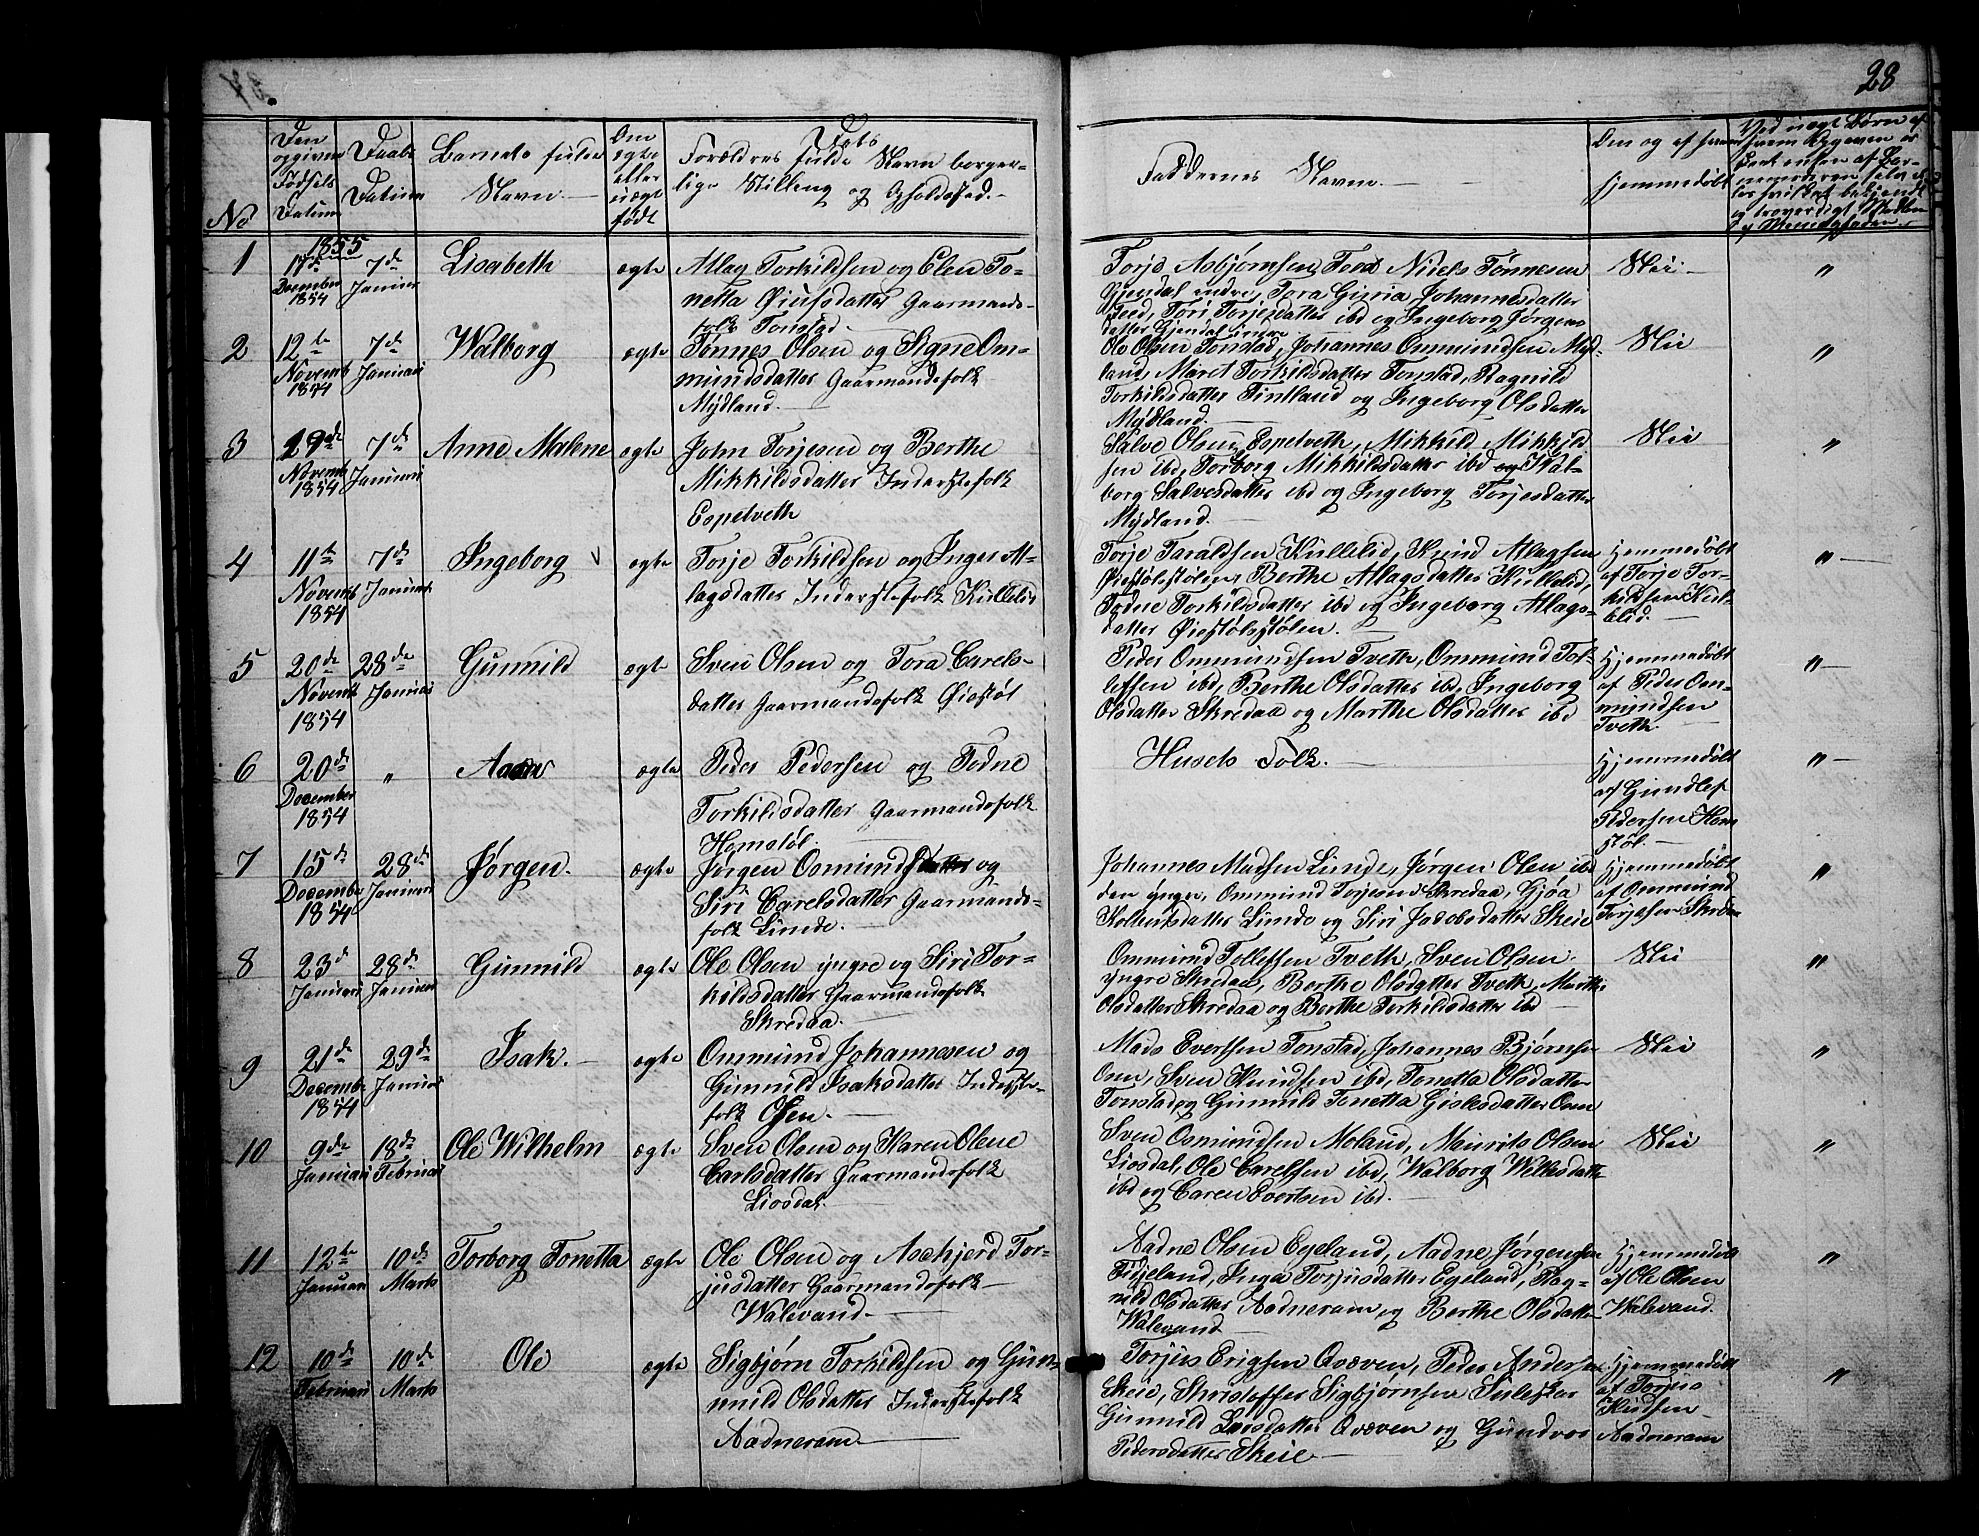 28
No
Den opgivne Fødsels Datum
Daabs Datum
Barnets fulde Navn.
Om ægte eller uægte født
Forældres fulde Navn borger-
lige Stilling og Opholdssted.
Faddernes Navn.
Om og af hvem
hjemmedøbt
1855
1
17de December 1854
7de Januar
Lisabeth
ægte
Atlag Torkildsen og Elen To-
netta Øiufsdatter Gaarmands-
folk Tonstad.
Torje Asbjørnsen Feed Niels Tønnesen
Gjendal indre, Tora Guria Johannesdatter
Feed, Tori Torjesdatter ibd og Ingeborg Jørgens
datter Gjendal indre
Nei
"
2
12te Novemb 1854
7de Januari
Walborg
ægte
Tønnes Olsen og Signe Om-
mundsdatter Gaarmandsfolk
Mydland.
Ole Olsen Tonstad, Johannes Ommundsen Myd-
land, Maret Torkildsdatter Tonstad, Ragnild
Torkildsdatter Fintland og Ingeborg Olsdatter
Mydland.
Nei
"
3
29de Novemb 1854
7de Januari
Anne Malene
ægte
John Torjesen og Berthe
Mikkildsdatter Inderstefolk
Espetveth
Salve Olsen Espetveth, Mikkild Mikkild
sen ibd, Torborg Mikkildsdatter ibd og Wal-
borg Salvesdatter ibd og Ingeborg Torjesdatter
Mydland.
Nei
"
4
11te Novemb 1854
7de Januar
Ingeborg
ægte
Torje Torkildsen og Inger At-
lagsdatter Inderstefolk Kullelid
Torje Taraldsen Kullelid, Knud Atlagsen
Øiestølstølen, Berthe Atlagsdatter Kullelid,
Todne Torkildsdatter ibd og Ingeborg Atlags-
datter Øiestølstølen.
hjemmedøbt
af Torje Tor-
kildsen Kul-
lelid.
"
5
20de Novemb 1854
28de Januar
Gunnild
ægte
Sven Olsen og Tora Carels-
datter Gaarmandsfolk Øiestøl
Peder Ommundsen Tveth, Ommund Tol-
lefsen ibd, Berthe Olsdatter ibd, Ingeborg
Olsdatter Skredaa og Marthe Olsdatter ibd
Hjemmedøbt
af Peder Om-
mundsen
Tveth.
"
6
20de December 1854
"
ægte
Peder Pedersen og Todne
Torkildsdatter Gaarmandsfolk
Homstøl.
Husets Folk.
Hjemmedøbt
af Gundlef
Pedersen Hom
støl.
"
7
15de Decembr 1854
28de Januari
Jørgen.
ægte
Jørgen Osmunds og
Siri Carelsdatter Gaarmands-
folk Linde.
Johannes Madsen Linde, Jørgen Olsen ibd
den yngre, Ommund Torjesen Skredaa, Gjøa
datter Linde og Siri Jacobsdatter Skeie
Hjemmedøbt
af Ommund
Torjesen Skredaa
"
8
23de Januari
28de Januari
Gunnild
ægte
Ole Olsen yngre og Siri Tor-
kildsdatter Gaarmandsfolk
Skredaa.
Ommund Tollefsen Tveth, Sven Olsen
yngre Skredaa, Berthe Olsdatter Tveth, Marthe
Olsdatter Skredaa og Berthe Torkildsdatter ibd
Nei
"
9
21de Decembr 1854
29de Januar
Isak.
ægte
Ommund Johannesen og
Gunnild Isaksdatter Inderste-
folk Osen.
Mads Evertsen Tonstad, Johannes Bjørnsen
Osen, Sven Knudsen ibd, Tonetta Olsdatter
Tonstad og Gunnild Tonetta Gislesdatter Osen
Nei
"
10
9de Januari
18de Februar
Ole Wilhelm
ægte
Sven Olsen og Karen Olene
Carlsdatter Gaarmandsfolk
Liosdal.
Sven Osmundsen Moland, Maurits Olsen
Liosdal, Ole Carelsen ibd, Walborg Willesdatter
ibd og Caren Evertsen ibd.
Nei
"
11
12te Januari
10de Marts
Torborg Tonetta
ægte
Ole Olsen og Asekjerd Tor-
jusdatter Gaarmandsfolk
Walevand.
Aadne Olsen Egeland, Aadne Jørgensen
Fidjeland, Inga Torjusdatter Egeland, Rag-
nild Olsdatter Aadneram og Berthe Olsdatter
Walevand
Hjemmedøbt
af Ole Olsen
Walevand.
"
12
10de Februari
10de Marts
Ole
ægte
Sigbjørn Torkildsen og Gun-
nild Olsdatter Inderstefolk
Aadneram
Torjus Erigsen Qvæven, Peder Andersen
Skeie, Christoffer Sigbjørnsen Suleskar
Gunnild Larsdatter Qvæven og Gundvor
Pedersdatter Skeie.
Hjemmedøbt
af Torjus
Knudsen
Aadneram
"